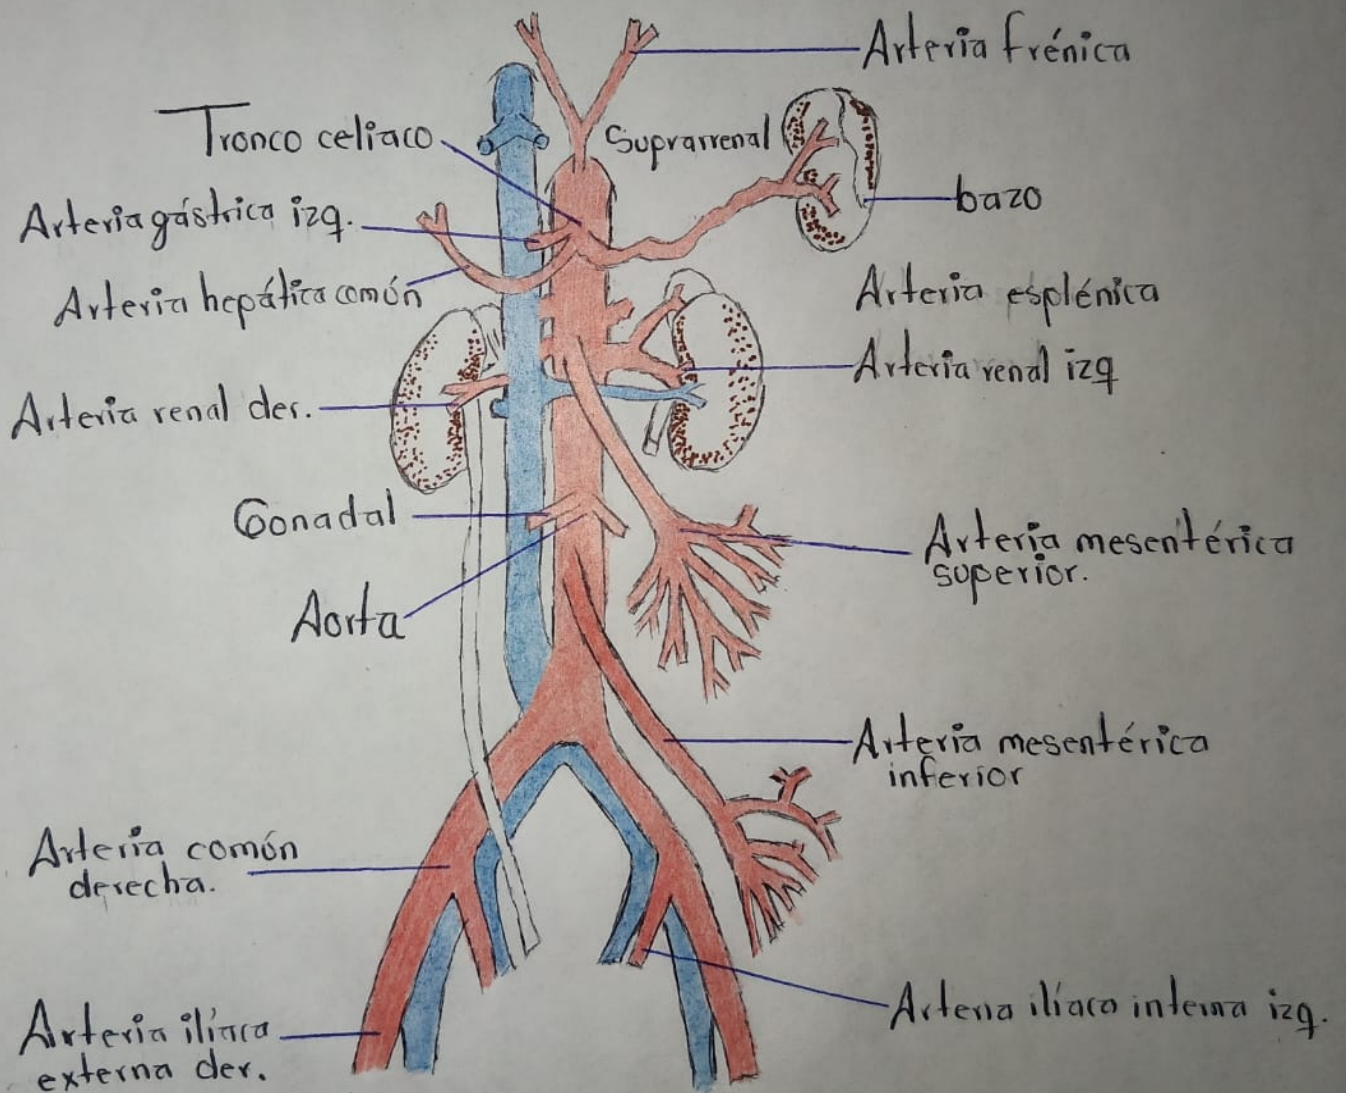 Arteria frénica
Tronco celiaco
Suprarrenal
bazo
Arteria gástrica izq.
Arteria hepática común
Arteria esplénica
Arteria renal izq
Arteria renal der.
Gonadal
Arteria mesentérica
superior.
Aorta
Arteria mesentérica
inferior
Arteria común
derecha.
Arteria ilíaca interna izq.
Arteria ilíaca
externa der.